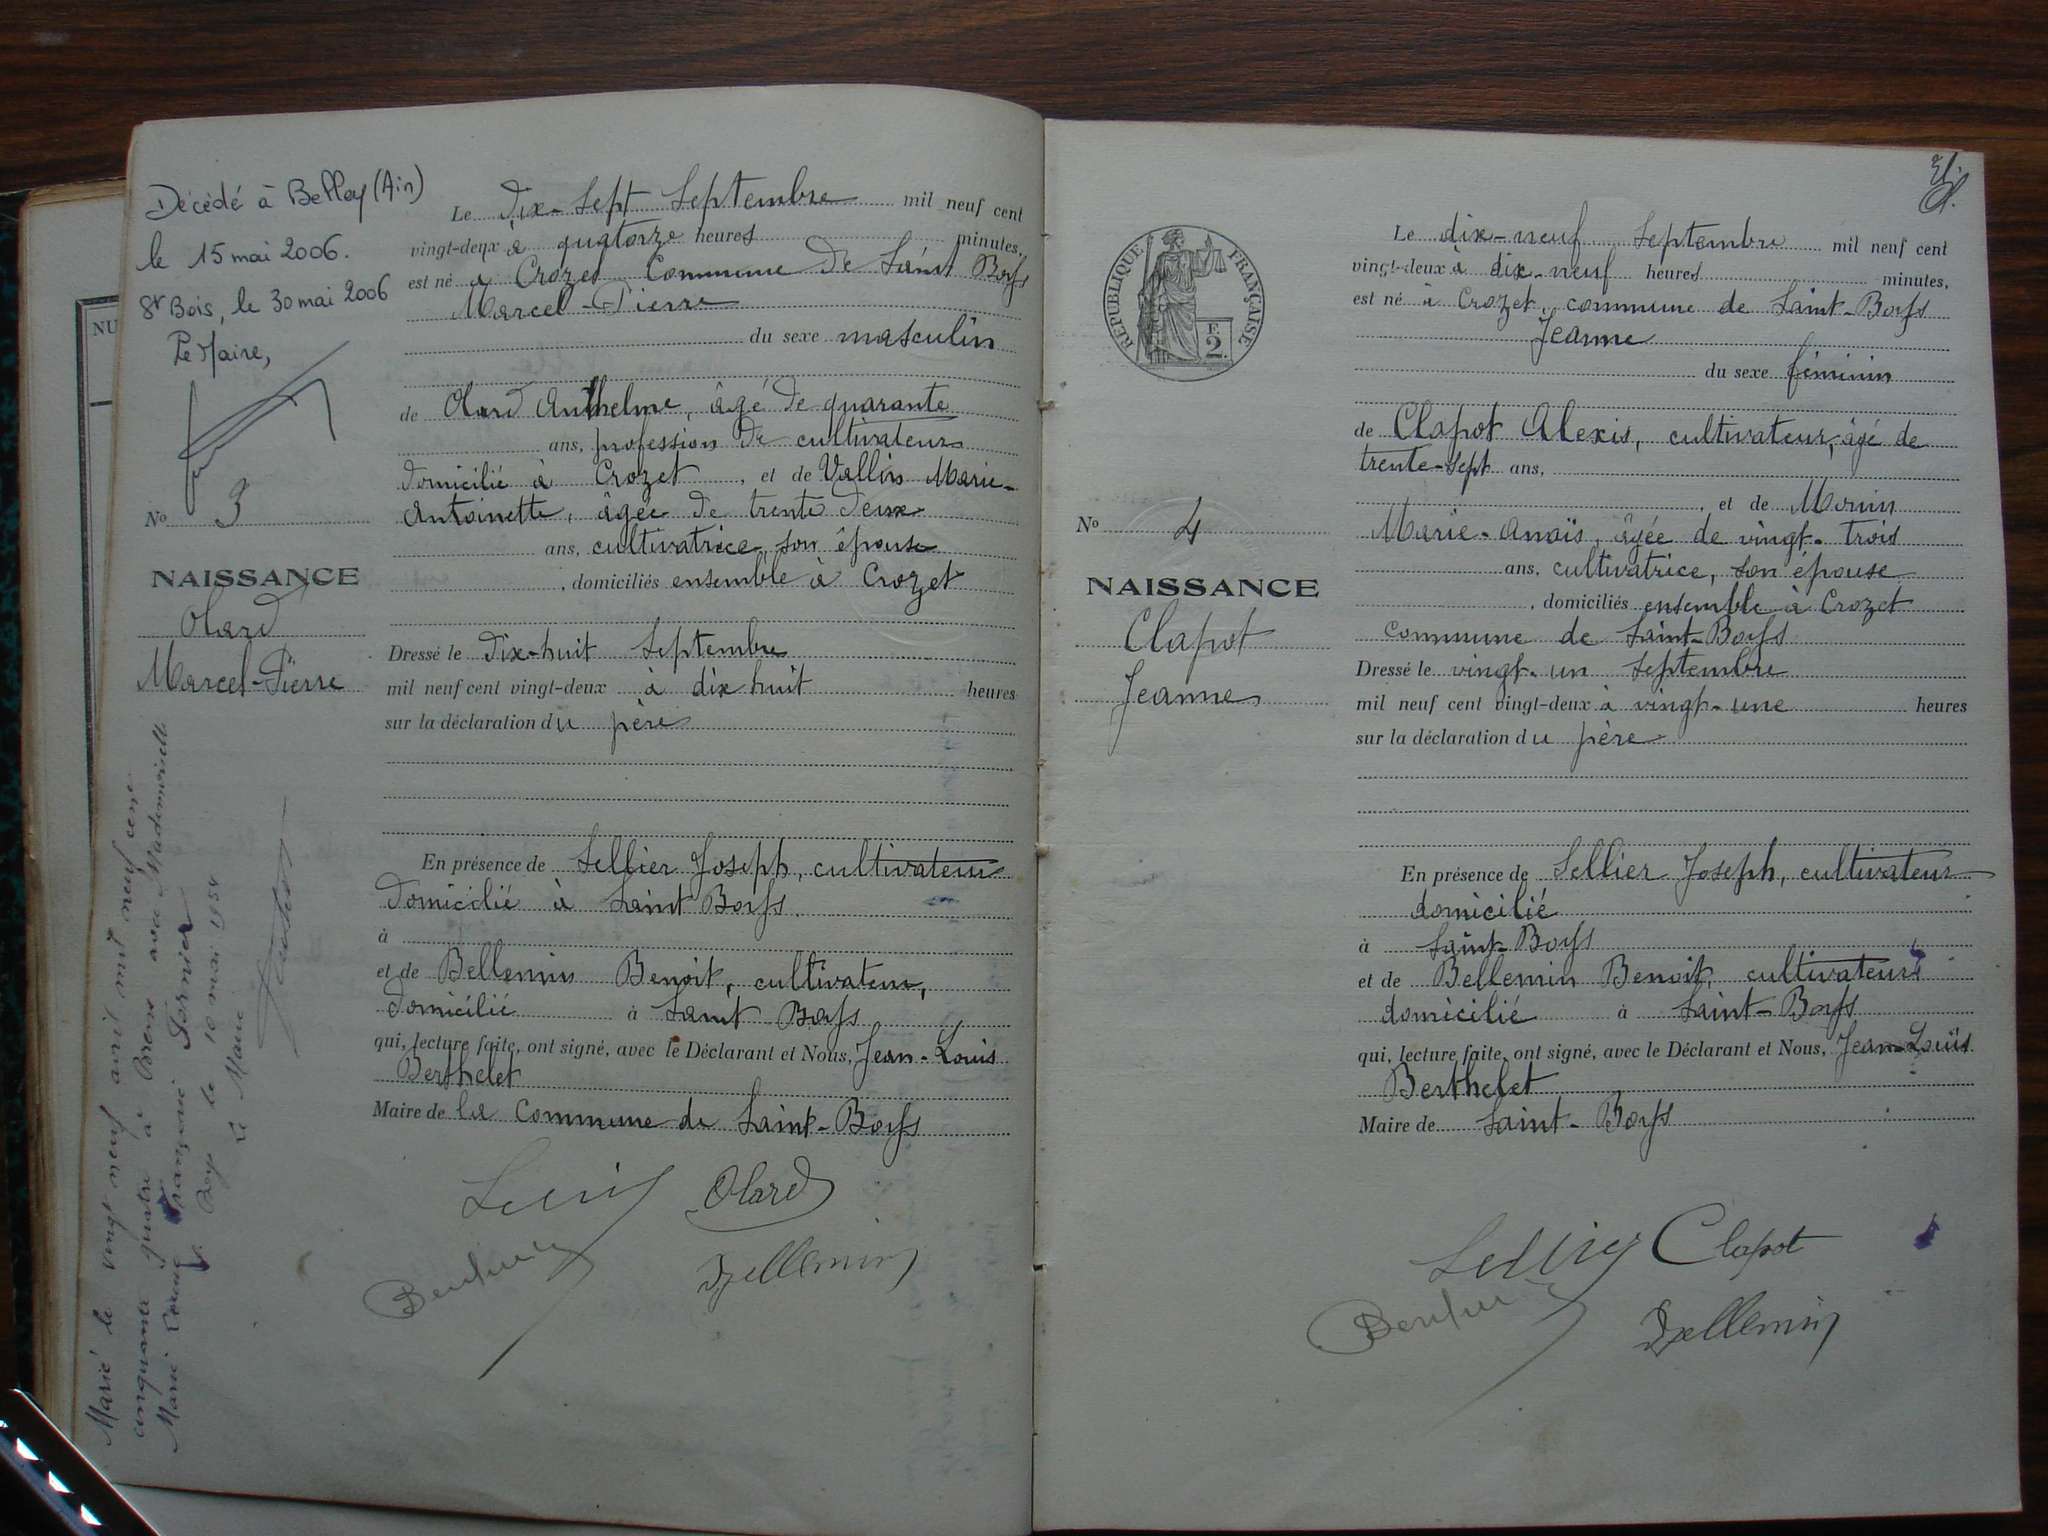 Décédé à Belley (Ain)
le 15 mai 2006.
St Bois, le 30 mai 2006
Le Maire,
No 3
NAISSANCE
Olard
Marcel-Pierre
Marié le vingt neuf avril mil neuf cent
cinquante quatre à avec Mademoiselle
Marie Françoise
le 10 mai 1954
Le Maire
NU
Le dix-sept Septembre mil neuf cent
vingt-deux à quatorze heures minutes,
est né à Crozet Commune de Saint Boys
Marcel-Pierre
du sexe masculin
de Olard Anthelme, âgé de quarante
ans, profession de cultivateur
domicilié à Crozet, et de Vallin Marie-
Antoinette, âgée de trente deux
ans, cultivatrice, son épouse
, domiciliés ensemble à Crozet
Dressé le dix-huit Septembre
mil neuf cent vingt-deux à dix huit heures
sur la déclaration du père
En présence de Sellier Joseph, cultivateur
domicilié à Saint Boys.
à
et de Bellemin Benoit, cultivateur,
domicilié à Saint Boys
qui, lecture faite, ont signé, avec le Déclarant et Nous, Jean-Louis
Berthelet
Maire de la Commune de Saint-Boys
Olard
Bellemin
REPUBLIQUE FRANÇAISE
F.
2.
No 4
NAISSANCE
Clapot
Jeanne
Le dix-neuf Septembre mil neuf cent
vingt-deux à dix-neuf heures minutes,
est né à Crozet commune de Saint-Boys
Jeanne
du sexe féminin
de Clapot Alexis, cultivateur, âgé de
trente-sept ans,
, et de
Marie-Anaïs, âgée de vingt-trois
ans, cultivatrice, son épouse
, domiciliés ensemble à Crozet
commune de Saint-Boys
Dressé le vingt-un Septembre
mil neuf cent vingt-deux à vingt-une heures
sur la déclaration du père
En présence de Sellier Joseph, cultivateur
domicilié
à Saint-Boys
et de Bellemin Benoit, cultivateur
domicilié à Saint-Boys
qui, lecture faite, ont signé, avec le Déclarant et Nous, Jean-Louis
Berthelet
Maire de Saint-Boys
Sellier Clapot
Bellemin